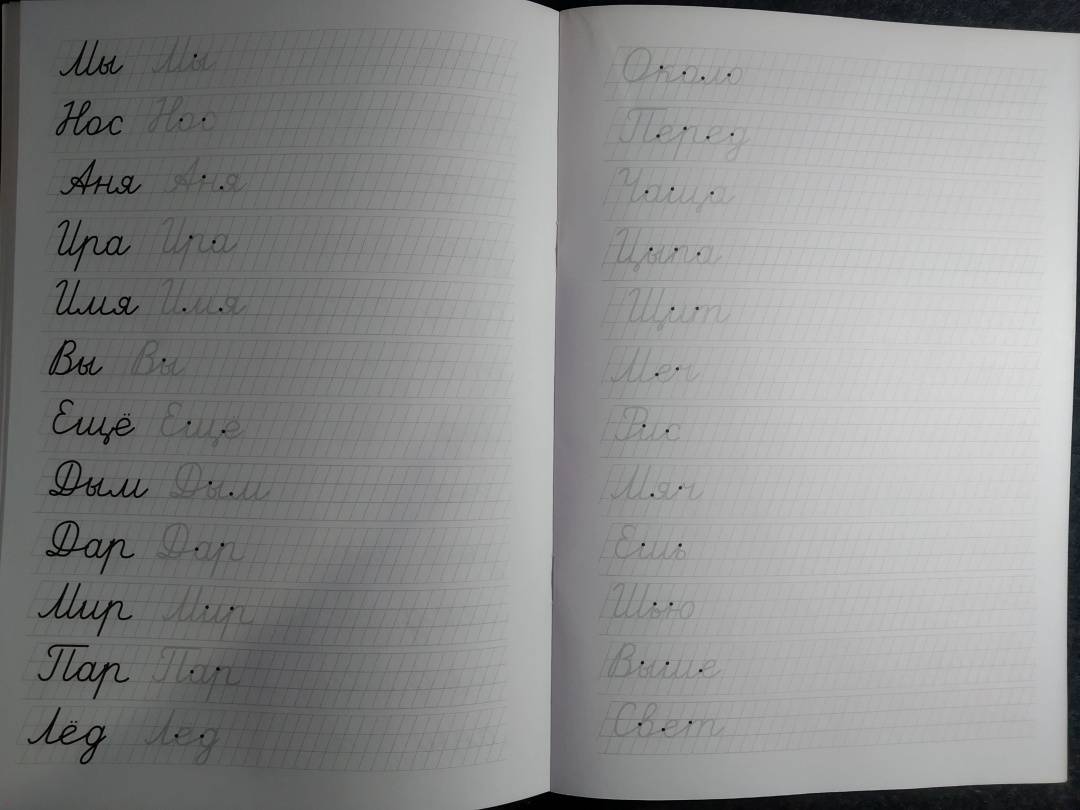 Мы Мы
Нос Нос
Аня Аня
Ира Ира
Имя Имя
Вы Вы
Ещё Ещё
Дым Дым
Дар Дар
Мир Мир
Пар Пар
Лёд Лед
Около
Перед
Чаща
Цыпа
Щит
Меч
Рис
Мяч
Ешь
Шью
Выше
Свет